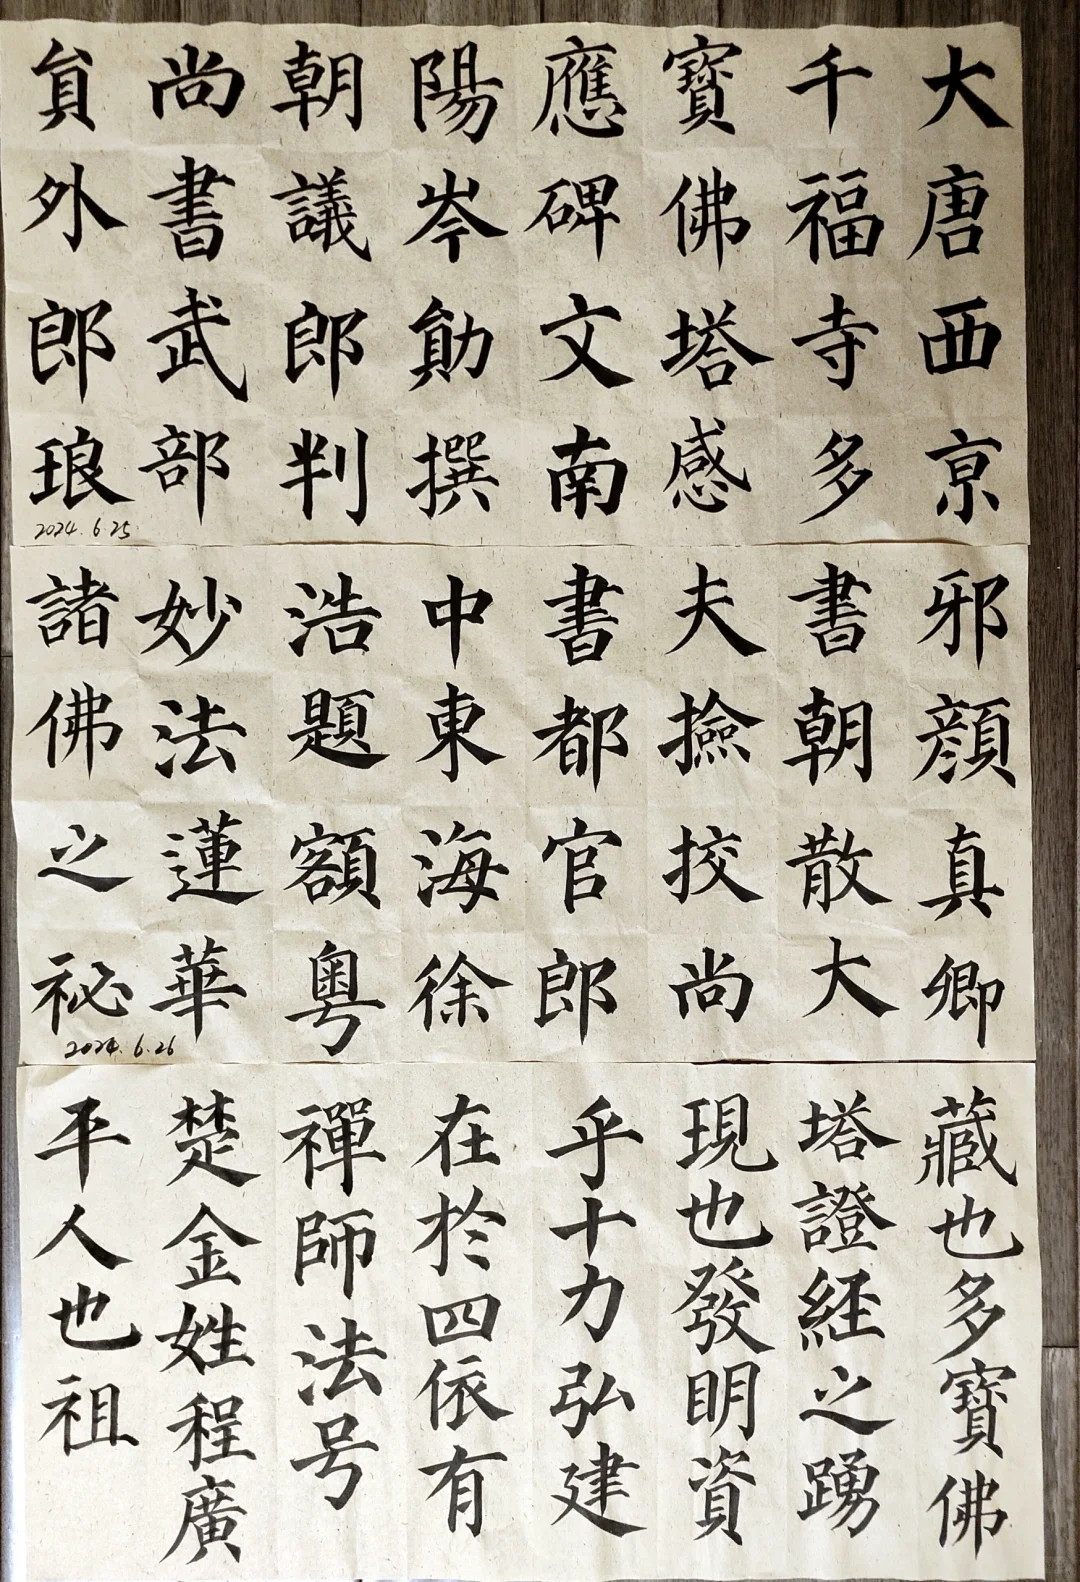 大唐西京
千福寺多
寶佛塔感
應碑文南
陽岑勛撰
朝議郎判
尚書武部
員外郎琅
2024.6.25
邪顏真卿
書朝散大
夫撿挍尚
書都官郎
中東海徐
浩題額粵
妙法蓮華
諸佛之祕
2024.6.26
藏也多寶佛
塔證経之踴
現也發明資
乎十力弘建
在於四依有
禪師法号
楚金姓程廣
平人也祖